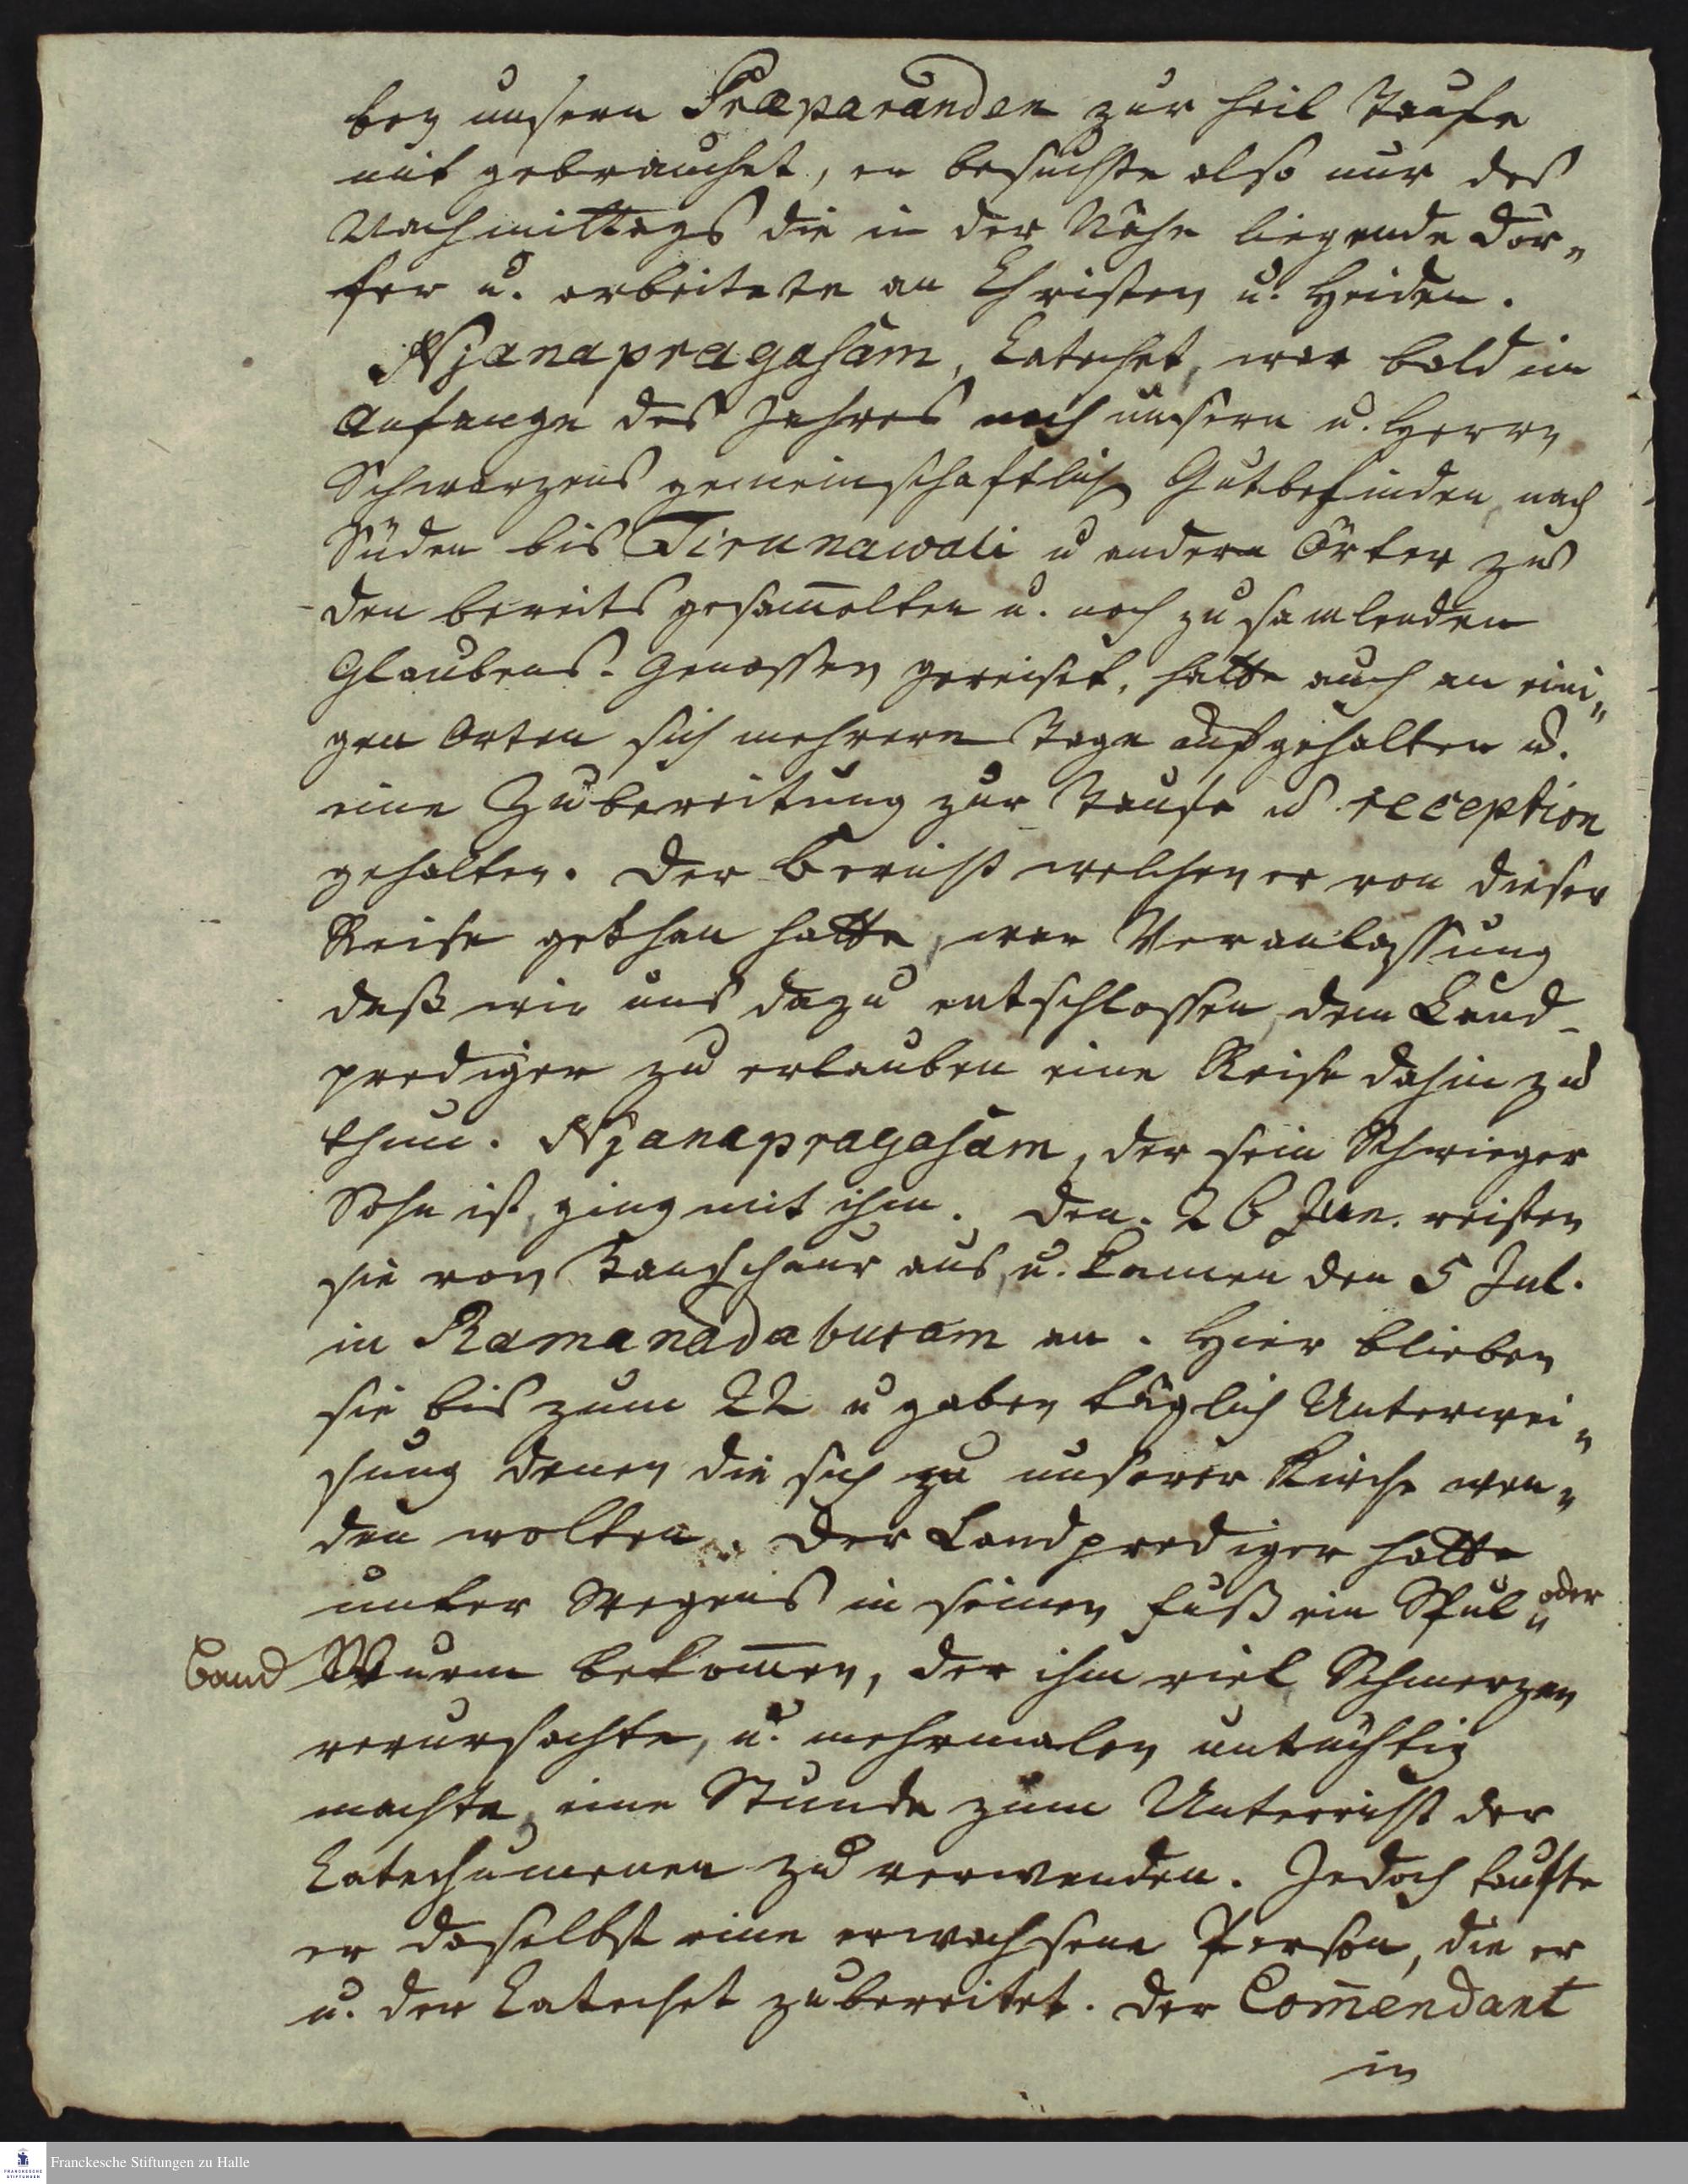 bey unsern Præparanden zur heil Taufe
mit gebrauchet, er besuchte also nur des
Nachmittags die in der Nähe liegende Dör„
fer u. arbeitete an Christen u. Heiden.
Njanapragasam, Catechet, war bald im
Anfange des Jahres nach unsern u. Herrn
Schwarzens gemeinschaftlich Gutbefinden nach
Süden bis Tirunawali u andern Örter zu
den bereits gesam̅elten u. noch zu samlenden
Glaubens-Genossen gereiset, hatte auch an eini„
gen Orten sich mehrere Tage aufgehalten u.
eine Zubereitung zur Taufe u reception
gehalten. Der Bericht welchen er von dieser
Reise gethan hatte, war Veranlassung
daß wir uns dazu entschlossen dem Land-
prediger zu erlauben eine Reise dahin zu
thun. Njanapragasam, der sein Schwieger
Sohn ist, ging mit ihm. Den. 26 Jun. reisten
sie von Tanschaur aus, u. kamen den 5 Jul.
in Ramanadaburam an. Hier blieben
sie bis zum 22 u gaben täglich Unterwei„
sung denen die sich zu unserer Kirche wen„
den wolten. Der Landprediger hatte
unter Wegens in seinen Fuß ein Spul„ oder
Band Wurm bekom̅en, der ihm viel Schmerzen
verursachte, u. mehrmalen untüchtig
machte, eine Stunde zum Unterricht der
Catechumenen zu verwenden. Jedoch taufte
er daselbst eine erwachsene Person, die er
u. der Catechet zubereitet. Der Com̅endant
in
Franckesche Stiftungen zu Halle
FRANCKESCHE STIFTUNGEN